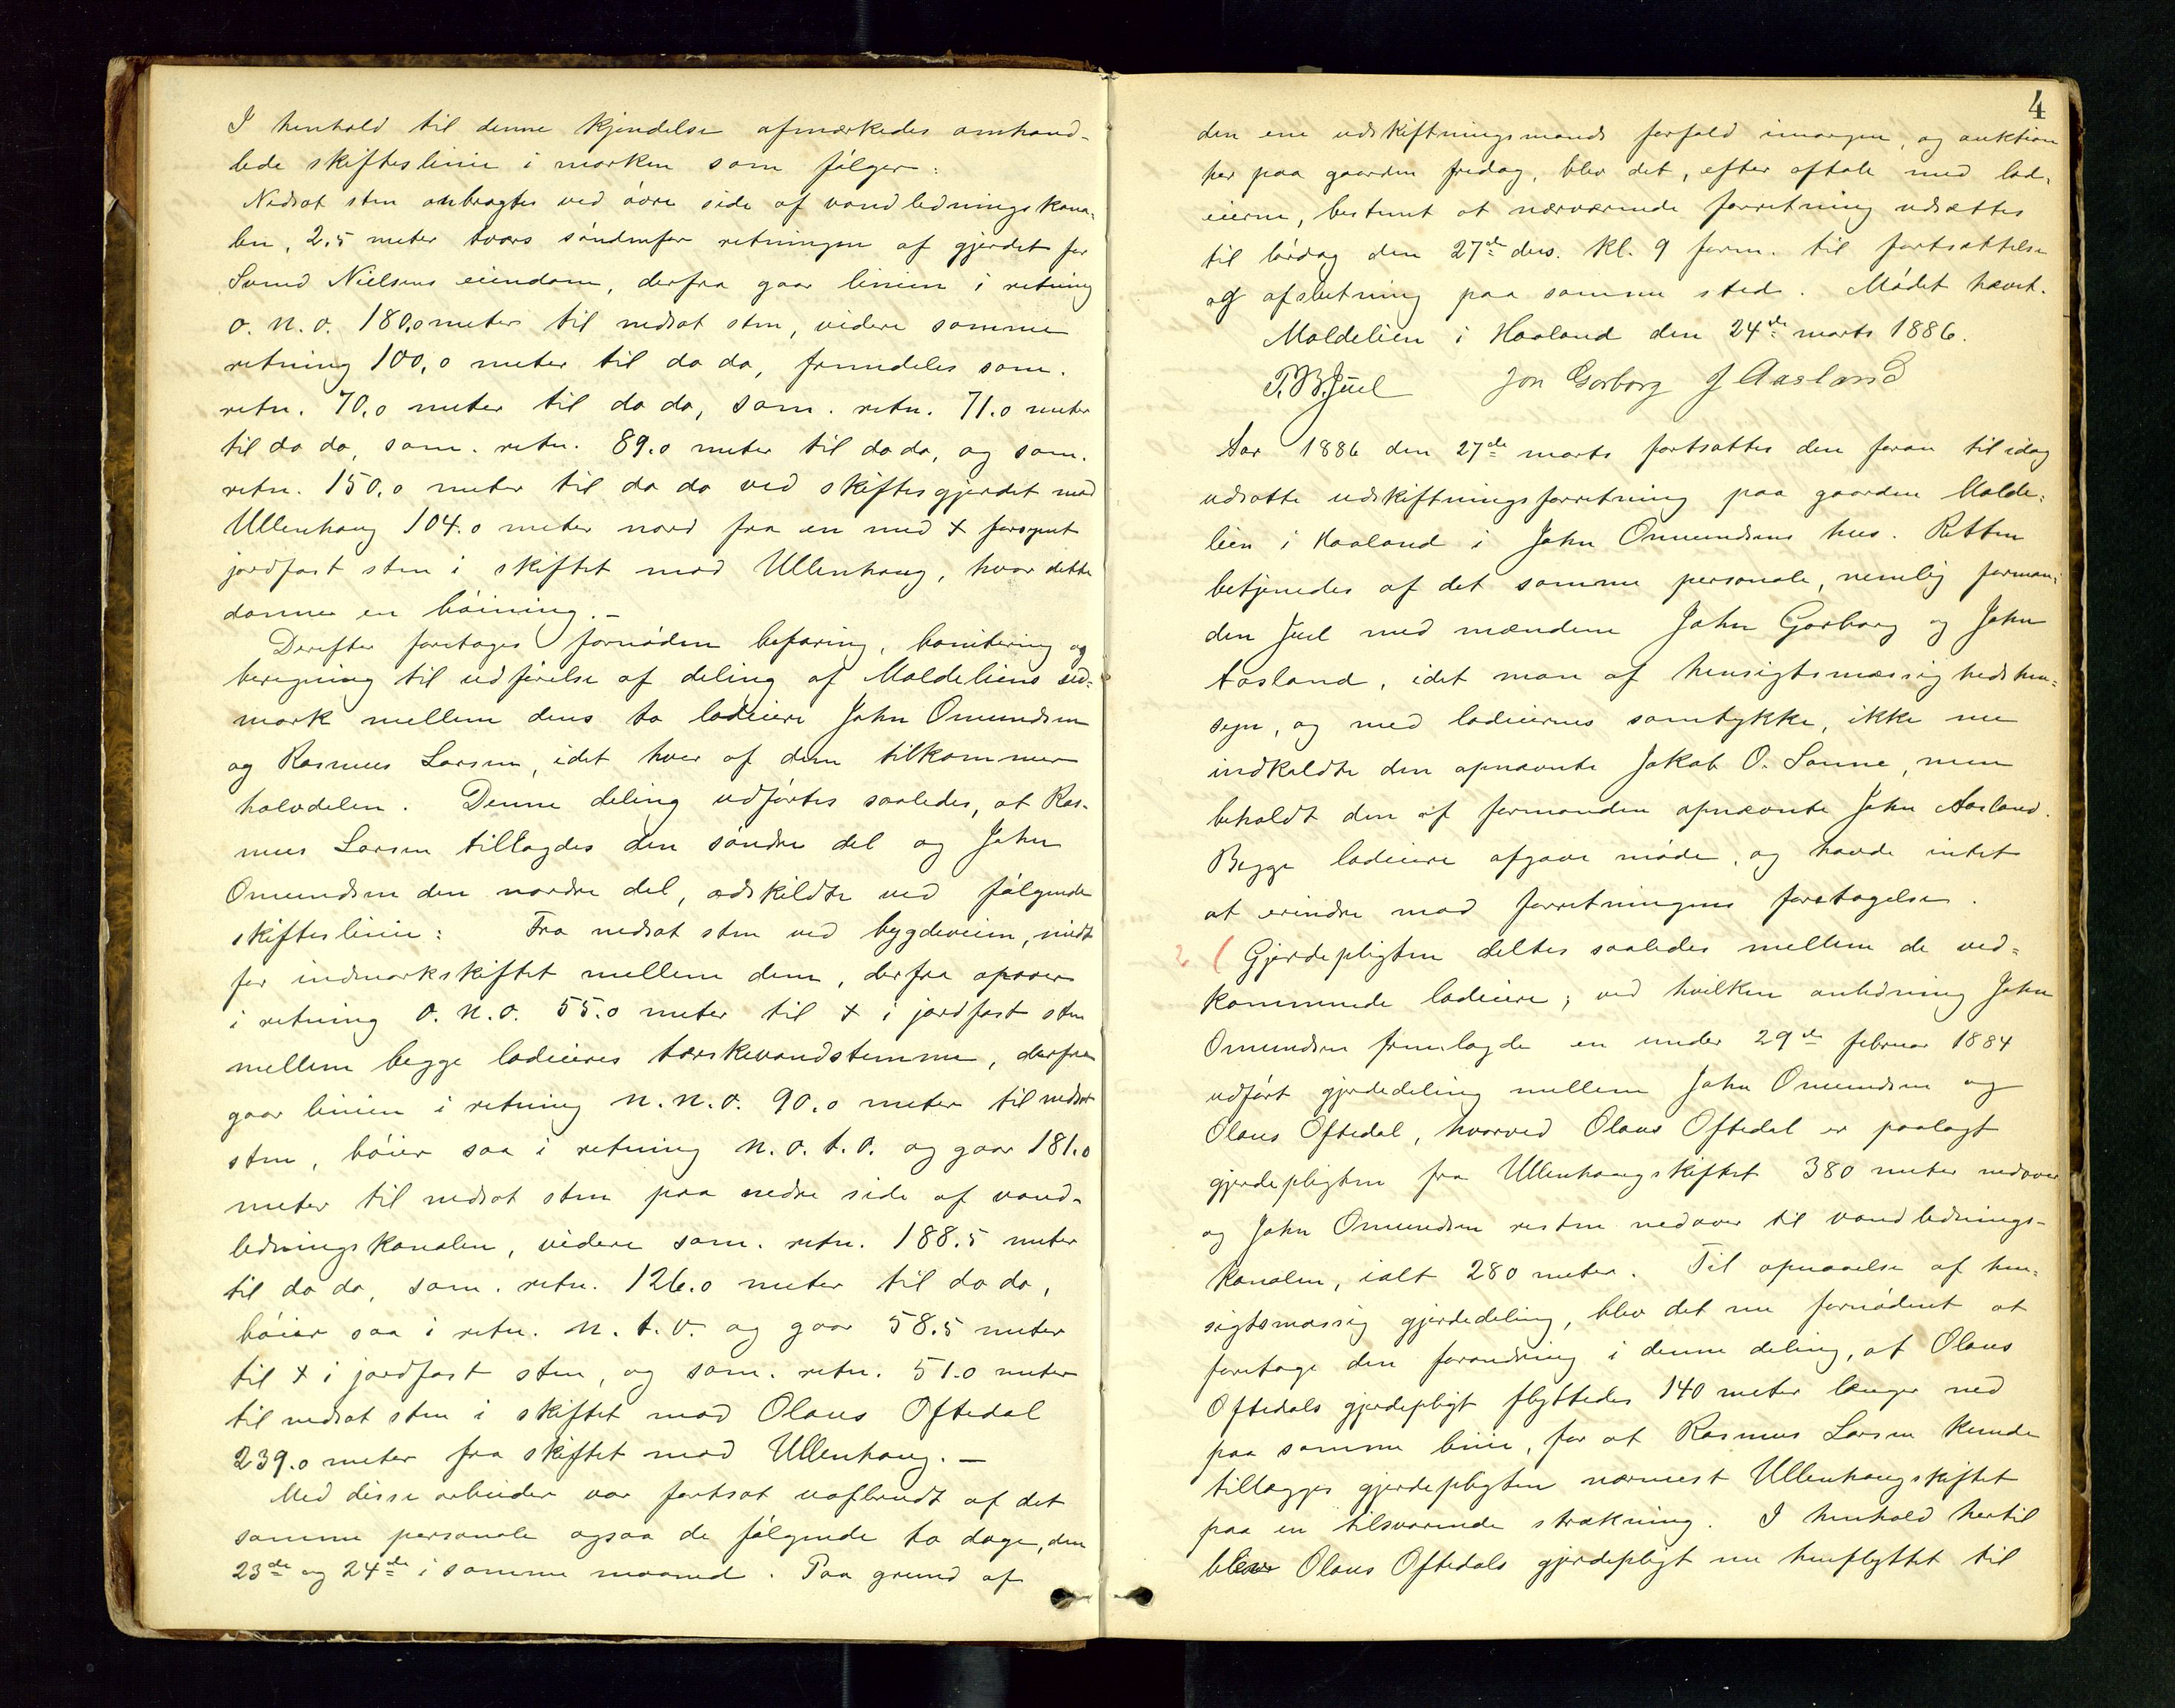 I henhold til denne kjendelse afmærkedes omhand-
lede skifteslinie i marken som følger:
Nedsat sten anbragtes ved øvre side af vandledningskana-
len, 2.5 meter tvers søndenfor retningen af gjerdet for
Svend Nielsens eiendom, derfra gaar linien i retning
o. n. o. 180.0 meter til nedsat sten, videre samme
retning 100,0 meter til do do, fremdeles sam.
retn. 70,0 meter til do do, sam. retn. 71.0 meter
til do do, sam. retn. 89.0 meter til do do, og sam.
retn. 150,0 meter til do do ved skiftesgjerdet mod
Ullenhaug 104.0 meter nord fra en med + forsynet
jordfast sten i skiftet mod Ullenhaug, hvor dette
danner en bøining.-
Derefter foretoges fornøden befaring, bonitering og
beregning til udførelse af deling af Maldeliens ud-
mark mellem dens to lodeiere John Omundsen
og Rasmus Larsen, idet hver af dem tilkommer
halvdelen. Denne deling udførtes saaledes, at Ras-
mus Larsen tillagdes den søndre del og John
Omundsen den nordre del, adskildte ved følgende
skifteslinie: Fra nedsat sten ved bygdeveien, midt
for indmarkskiftet mellem dem, derfra opover
i retning o. n. o. 55.0 meter til + i jordfast sten
mellem begge lodeieres tærskevandstemme, derfra
gaar linien i retning n. n. o. 90.0 meter til nedsat
sten, bøier saa i retning n. o. t. o. og gaar 181.0
meter til nedsat sten paa nedre side af vand-
ledningskanalen, videre sam. retn. 188.5 meter
til do do, sam. retn. 126.0 meter til do do,
bøier saa i retn. n. t. o. og gaar 58.5 meter
til + i jordfast sten, og sam. retn. 51.0 meter
til nedsat sten i skiftet mod Olaus Oftedal
239.0 meter fra skiftet mod Ullenhaug. —
Med disse arbeider var fortsat uafbrudt af det
samme personale ogsaa de følgende to dage, den
23de og 24de i samme maaned. Paa grund af
4
den ene udskiftningsmands forfald imorgen, og auktion
her paa gaarden fredag, blev det, efter aftale med lod-
eierne, bestemt at nærværende forretning udsættes
til lørdag den 27de ds. kl. 9 form. til fortsættelse
og afslutning paa samme sted. Mødet hævet.
Maldelien i Haaland den 24de marts 1886.
T. B. Juel Jon Gorborg J Aasland
Aar 1886 den 27de marts fortsattes den foran til idag
udsatte udskiftningsforretning paa gaarden Malde-
lien i Haaland i John Omundsens hus. Retten
betjenedes af det samme personale, nemlig forman-
den Juel med mændene John Gorborg og John
Aasland, idet man af hensigtsmæssighedshen-
syn, og med lodeiernes samtykke, ikke nu
indkaldte den opnævnte Jakob O. Sømme, men
beholdt den af formanden opnævnte John Aasland.
Begge lodeiere afgave møde, og havde intet
at erindre mod forretningens foretagelse.
( Gjerdepligten deltes saaledes mellem de ved-
kommende lodeiere; ved hvilken anledning John
Omundsen fremlagde en under 29de februar 1884
udført gjerdedeling mellem John Omundsen og
Olaus Oftedal, hvorved Olaus Oftedal er paalagt
gjerdepligten fra Ullenhaugskiftet 380 meter nedover
og John Omundsen resten nedover til vandlednings-
kanalen, ialt 280 meter. Til opnaaelse af hen-
sigtsmæssig gjerdedeling, blev det nu fornødent at
foretage den forandring i denne deling, at Olaus
Oftedals gjerdepligt flyttedes 140 meter længer ned
paa samme linie, for at Rasmus Larsen kunde
tillægges gjerdepligten nærmest Ullenhaugskiftet
paa en tilsvarende strækning. I henhold hertil
blev Olaus Oftedals gjerdepligt nu henflyttet til